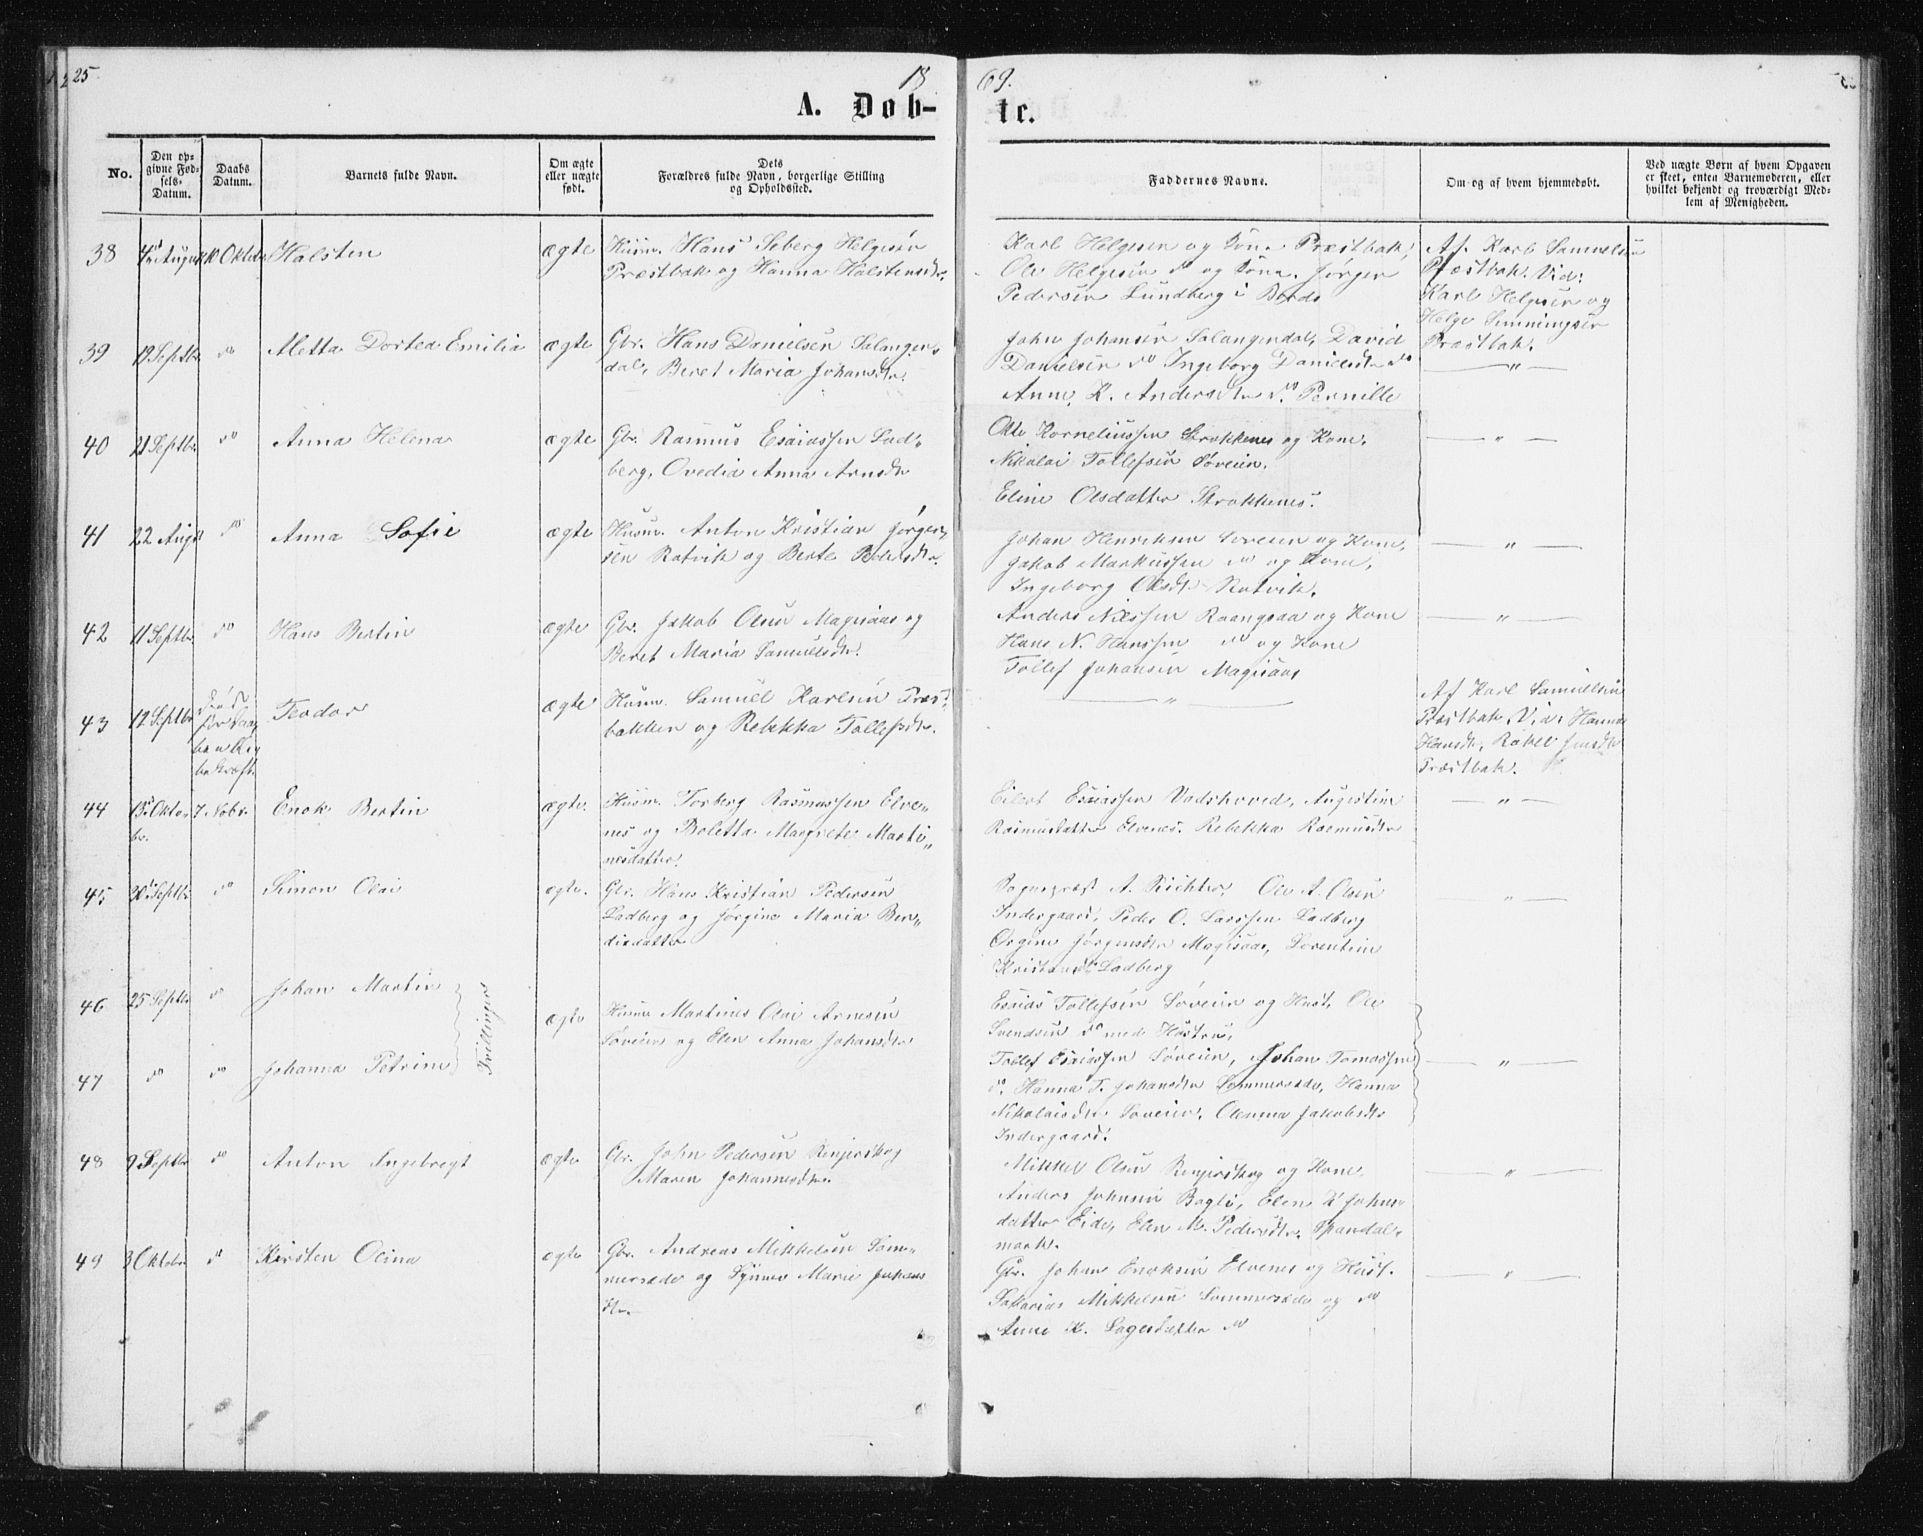 25
18
69.
A. Døb-
te.
No.
Den op-
givne Fød-
sels-
Datum.
Daabs
Datum.
Barnets fulde Navn.
Om ægte
eller uægte
født.
Dets
Forældres fulde Navn, borgerlige Stilling
og Opholdssted.
Faddernes Navne.
Om og af hvem hjemmedøbt.
Ved uægte Børn af hvem Opgaven
er skeet, enten Barnemoderen, eller
hvilket bekjendt og troværdigt Med-
lem af Menigheden.
38 Halsten ægte Husm. Hans Seberg Helgesen
Præstbak og Hanna Halstensdtr.
Karl Helgesen og Præstbak,
Ole Helgesen do og Jørgen
Pedersen Lundberg i
Af. Karl Samuelsen
Præstbak. Vid:
Karl Helgesen og
Helge
Præstbak.
39 12 Septbr. do Metta Dortea Emilia ægte Gbr. Hans Danielsen Salanger-
dal, Beret Maria Johansdtr.
John Johansen Salangerdal, David
Danielsen do Ingeborg Danielsdtr do
Anne K. Andersdtr do Pernille
— " —
40 21 Septbr. do Anna Helena ægte Gbr. Rasmus Esaiassen Lad-
berg, Ovedia Anna Arnsdtr
Otto Korneliussen Strokkenes og Kone,
Nikolai Tollefsen Søveien,
Eline Olsdatter Strokkenes.
— " —
41 22 Augst do Anna Sofie ægte Husm. Anton Kristian Jørgen-
sen Rotvik og Berte
Johan Henriksen Søveien og Kone,
Jakob Markussen do og Kone,
Ingeborg Olsdtr Rotvik.
— " —
42 11 Septbr. do Hans Bertin ægte Gbr. Jakob Olsen Magisaas og
Beret Maria Samuelsdtr.
Anders Nilssen Raangsaa og Kone
Hans N. Hanssen do og Kone
Tollef Johansen Magisaas
— " —
43 12 Septbr. Død
før
Teodor ægte Husm. Samuel Karlsen Præst-
bakken og Rebekka Tollefsdtr.
— " —
Af Karl Samuelsen
Præstbak, Vid: Hanna
Hansdtr, Rakel Jensdtr
Præstbak.
44 13 Okto-
br. 7 Novbr. Enok Bertin ægte. Husm. Torberg Rasmussen Elve-
nes og Boletta Margrete Marti-
nesdatter.
Eilert Esaiassen Vadshoved, Augustine
Rasmusdatter Elvenes. Rebekka Rasmusdtr
— " —
45 Septbr do Simon Olai ægte. Gbr. Hans Kristian Pedersen
Ladberg og Jørgine Maria Ben-
diksdatter
Sognepræst A. Richter, Ole A. Olsen
Indergaard, Peder O. Larssen Ladberg
Orgine Jørgensdtr Magisaas, Lorentine
Kristansdtr Ladberg
— " —
46 25 Septbr do Johan Martin
Tvillinger
ægte Husm Martines Olai Arnesen
Søveien og Elen Anna Johansdtr
47 do do Johanna Petrine
Esaias Tollefsen Søveien og Hust, Ole
Svendsen do med Hustru,
Tollef Esaiassen Søveien, Johan Tomassen
do. Hanna T. Johansdtr Sommersæde, Hanna
Nikolaisdtr Søveien, Olenma Jakobsdtr
Indergaard.
— " —
48 9 Septbr do Anton Ingebregt ægte Gbr. John Pedersen Renjerskog
Maren Johannesdtr.
Mikkel Olsen Renjerskog og Kone,
Anders Johnsen Bogli, Elen Johns-
datter Eide, Elen M. Pedersdtr. Spandal-
mark.
— " —
49 3 Oktobr do Kirsten Olina ægte Gbr. Andreas Mikkelsen Som-
mersæde og Synnev Marie Johans
dtr.
Gbr. Johan Enoksen Elvenes og Hust.
Sakarias Mikkelsen Sommersæde og do
Anne K. Lagesdatter do
— " —